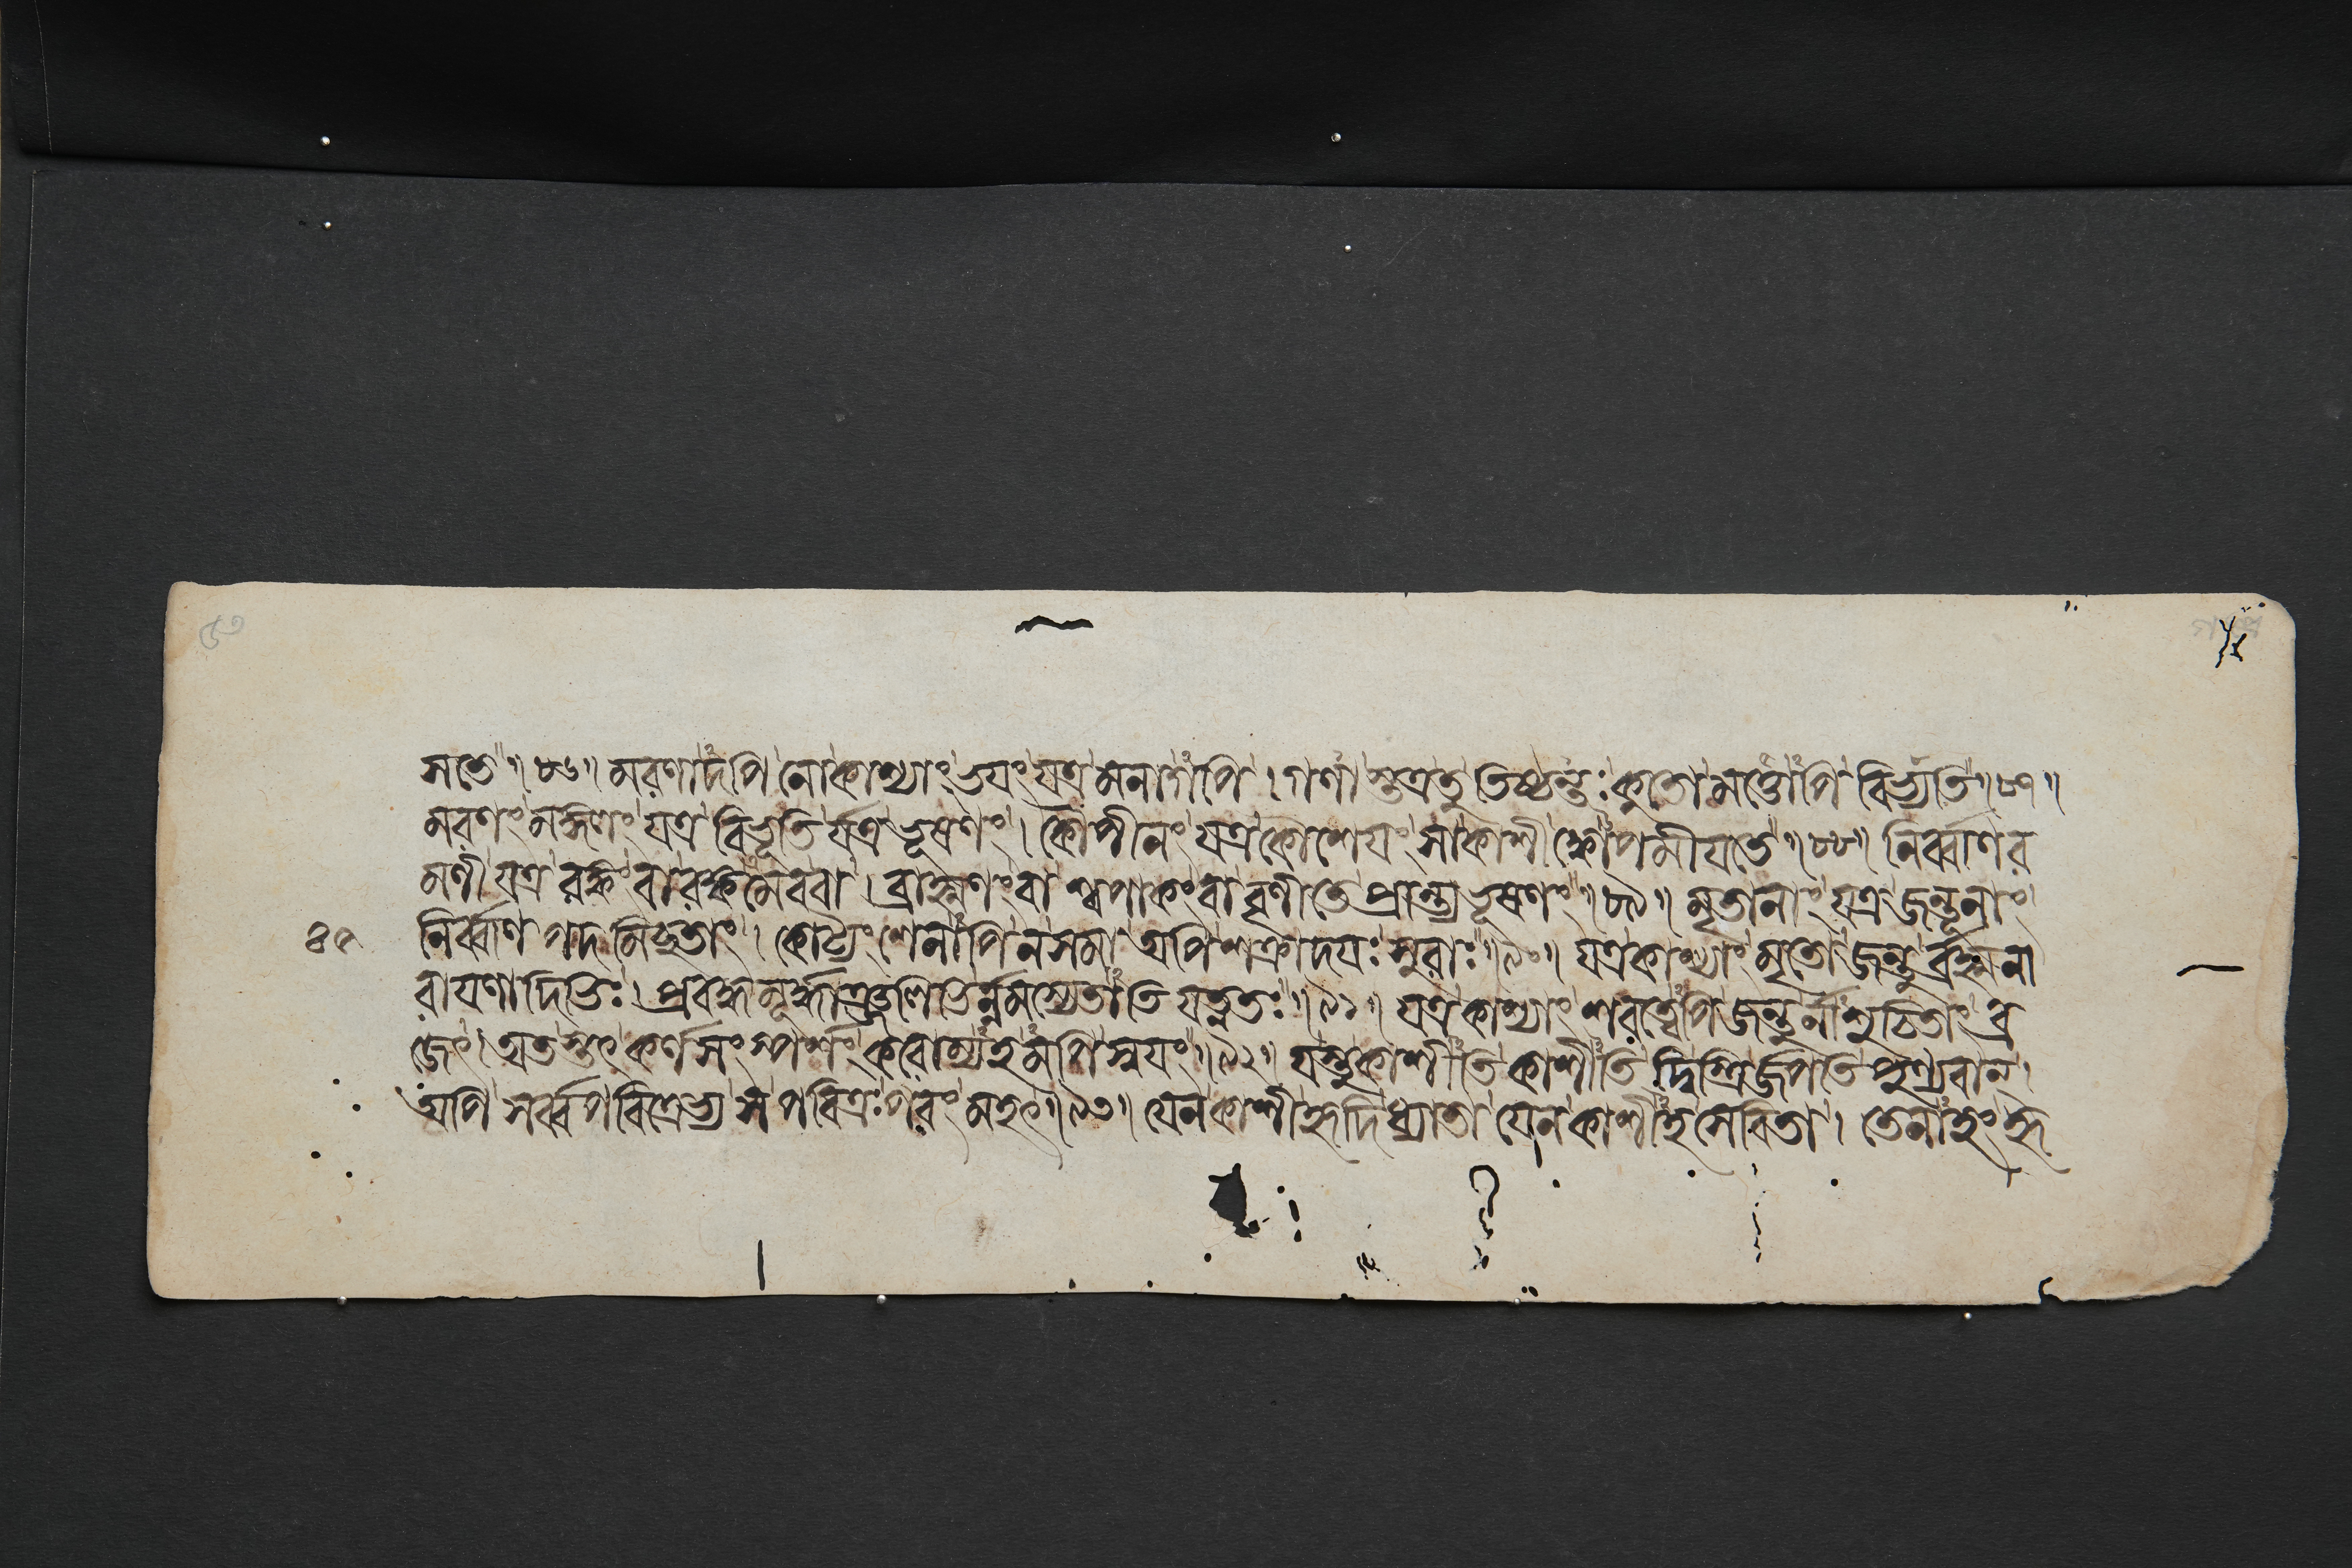 সতে॥৮৬॥ মরণাদপি নো কাশ্যাং ভয়ং যত্র মনাগপি। গণাস্তত্র তু তিষ্ঠন্তঃ কুতো মর্ত্ত্যোপি বিভ্যতি॥৮৭॥
মরণং মঙ্গলং যত্র বিভূতির্যত্র ভূষণং। কৌপীনং যত্র কৌশেয়ং সা কাশী ক্কোপমীয়তে॥৮৮॥ নির্ব্বাণর
মণী যত্র রঙ্কং বারঙ্কমেববা। ব্রাহ্মণং বা শ্বপাকং বা বৃণীতে প্রান্ত্যভূষণং॥৮৯॥ মৃতানাং যত্র জন্তূনাং
৪৫ নির্ব্বাণপদমিচ্ছতাং। কোট্যংশেনাপি ন সমা অপি শক্রাদয়ঃ সুরাঃ॥৯০॥ যত্র কাশ্যাং মৃতো জন্তুর্ব্রহ্মনা
রায়ণাদিভিঃ। প্রবদ্ধমূর্দ্ধাঞ্জলিভির্নমস্যেতাতিযত্নতঃ॥৯১॥ যত্র কাশ্যাং শবত্বেপি জন্তুর্নাশুচিতাং ব্র
জেৎ। অতস্তৎকর্ণসংস্পর্শং করোম্যহমপি স্বয়ং॥৯২॥ যস্তু কাশীতি কাশীতি দ্বিস্ত্রির্জপতি পুণ্যবান্।
অপি সর্ব্বপবিত্রেভ্য স পবিত্রঃপরং মহৎ॥৯৩॥ যেন কাশী হৃদি ধ্যাতা যেন কাশীহ সেবিতা। তেনাহং হৃ